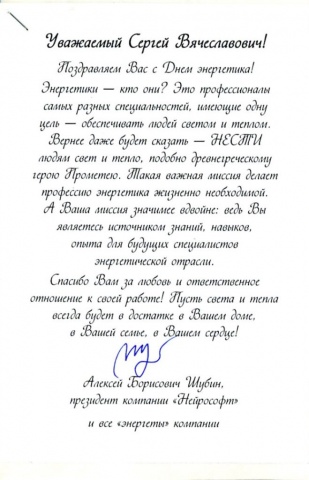 Уважаемый Сергей Вячеславович!
Поздравляем Вас с Днем энергетика!
Энергетики – кто они? Это профессионалы
самых разных специальностей, имеющие одну
цель – обеспечивать людей светом и теплом.
Вернее даже будет сказать – НЕСТИ
людям свет и тепло, подобно древнегреческому
герою Прометею. Такая важная миссия делает
профессию энергетика жизненно необходимой.
А Ваша миссия значимее вдвойне: ведь Вы
являетесь источником знаний, навыков,
опыта для будущих специалистов
энергетической отрасли.
Спасибо Вам за любовь и ответственное
отношение к своей работе! Пусть света и тепла
всегда будет в достатке в Вашем доме,
в Вашей семье, в Вашем сердце!
Алексей Борисович Шубин,
президент компании «Нейрософт»
и все «энергеты» компании